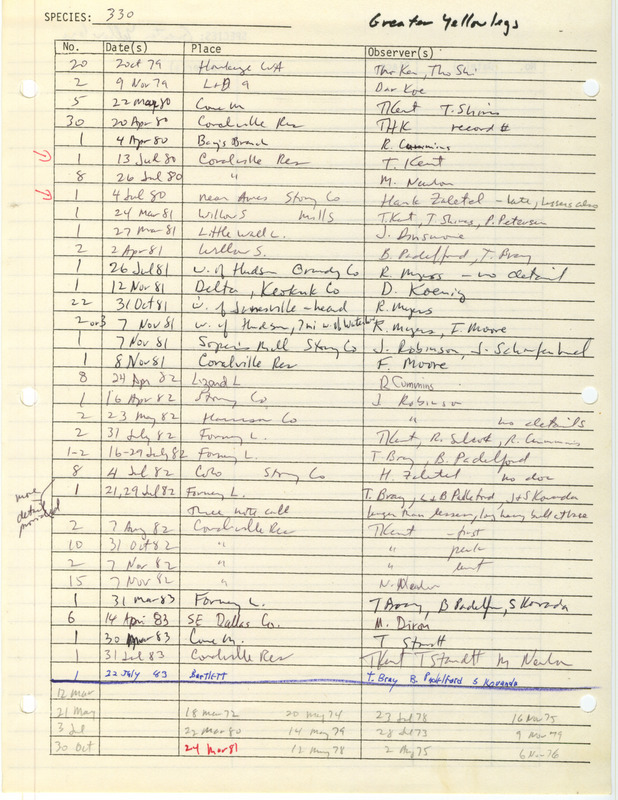 SPECIES: 330 Greater Yellowlegs
No. Date(s) Place Observer(s)
20 2 Oct 79 Hawkeye WA
2 9 Nov 79 L+D 9 Dar Koe
5 22 Mar 80 Cone M. TKent T. Shires
30 20 Apr 80 Coralville Res THK record #
1 4 Apr 80 Bays Branch R. Cummins
1 13 Jul 80 Coralville Res T. Kent
8 26 Jul 80 " M. Newlon
1 4 Jul 80 near Ames Story Co Hank Zaletel - late, Lessers also
1 24 Mar 81 Willow S mills T. Kent, T. Shires, P. Petersen
1 27 Mar 81 Little Wall L. J. Dinsmore
2 2 April 81 Willow S. B. Padelford, T. Bray
1 26 Jul 81 w. of Hudson Grundy Co R. Myers - no detail
1 12 Nov 81 Delta, Keokuk Co D. Koenig
22 31 Oct 81 w. of Janesville - head R. Myers
2 or 3 7 Nov 81 w. of Hudson, 7 mi w. of Waterloo R. Myers, F. Moore
1 7 Nov 81 Soper's Mill Story Co J. Robinson, J. Schaufenbuel
1 8 Nov 81 Coralville Res F. Moore
8 24 Apr 82 Lizard L R Cummins
1 16 Apr 82 Story Co J Robinson
2 23 May 82 Harrison Co " no details
2 31 July 82 Forney L. TKent, R. Silcock, R. Cummins
1-2 16-29 July 82 Forney L. T. Bray, B. Padelford
8 4 Jul 82 Colo Story Co H. Zaletel no doc
more details provided
1 21, 29 Jul 82 Forney L. T. Bray, L+B Padelford, J+S Kovanda
Three note call larger than lesser, long heavy bill
2 7 Aug 82 Coralville Res TKent - first
10 31 Oct 82 " " peak
2 7 Nov 82 " " last
15 7 Nov 82 " N. Newlon
1 31 Mar 83 Forney L. T Bray, B Padelford, S Kovanda
6 14 April 83 SE Dallas Co. M. Dixon
1 30 Mar 83 Cone M. T Staudt
1 31 Jul 83 Coralville Res TKent T Staudt M Newlon
1 22 July 83 Bartlett T. Bray B. Padelford S Kovanda
12 Mar
21 May 18 Mar 72 20 May 74 23 Jul 78 16 Nov 75
3 Jul 22 Mar 80 14 May 79 28 Jul 73 9 Nov 79
30 Oct 24 Mar 81 12 May 78 2 Aug 75 6 Nov 76